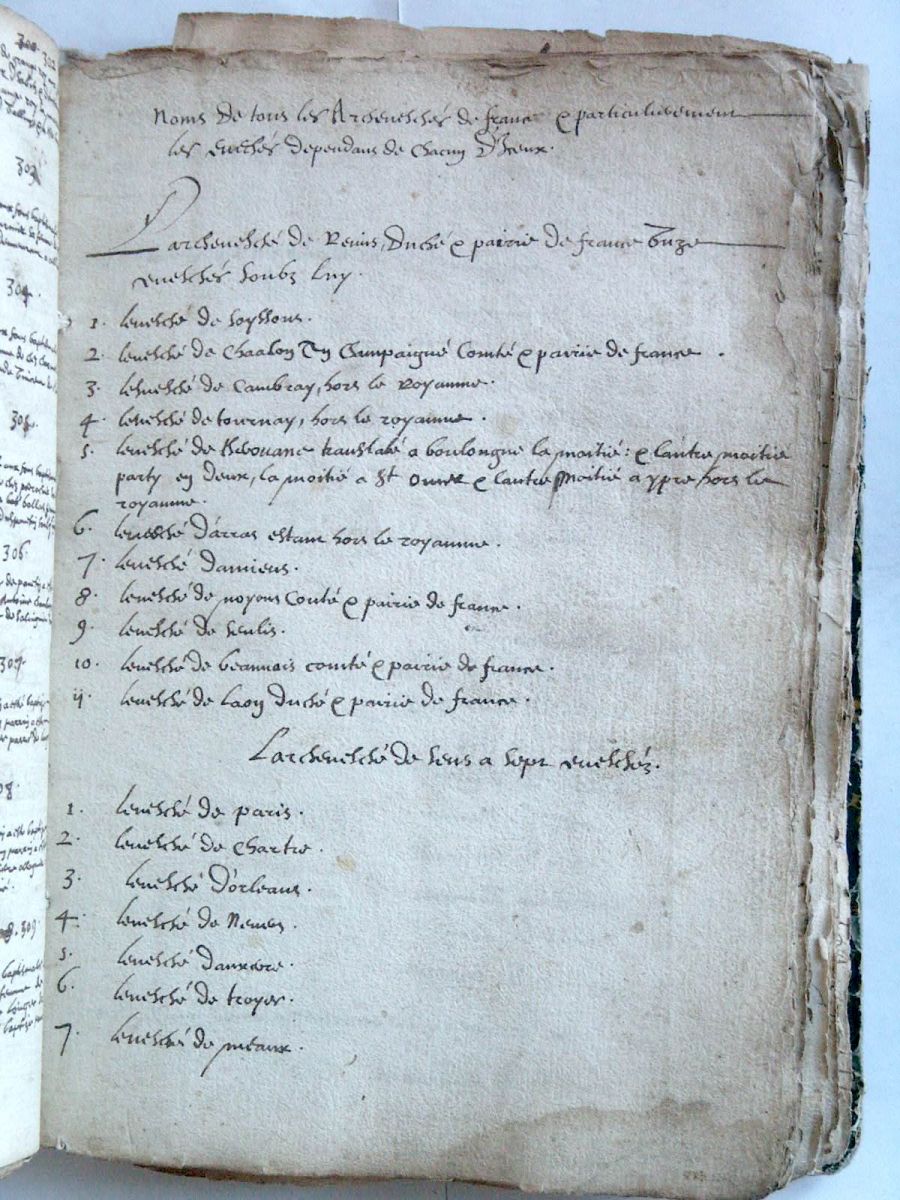 Noms de tous les Archeueschés de france & particulierement
les eueschés dependans de chacun D'Iceux.
Larcheuesché de Reims, Duché & pairie de france Vnze
eueschés soubz luy.
1. leuesché de soyssons.
2. leuesché de Chaalon En Champaigne Comté & pairie de france.
3. leuesché de Cambray, hors le Royaume.
4. leuesché de tournay, hors le royaume.
5. leuesché de therouane translaté a boulongne la moitié: & lautre moitié
party en deux, la moitié a St Omer & lautre moitié a ypre hors le
royaume.
6. leuesché d'arras estant hors le royaume.
7. leuesché damiens.
8. leuesché de noyons Conté & pairie de france.
9. leuesché de senlis.
10. leuesché de beauuais comté & pairie de france.
11. leuesché de laon duché & pairie de france.
Larcheuesché de sens a sept eueschéz.
1. leuesché de paris.
2. leuesché de Chartre.
3. leuesché D'orleans.
4. leuesché de Neuers.
5. leuesché dauxerre.
6. leuesché de troyes.
7. leuesché de meaux.
300 302
303
304.
305.
306.
307.
308.
309